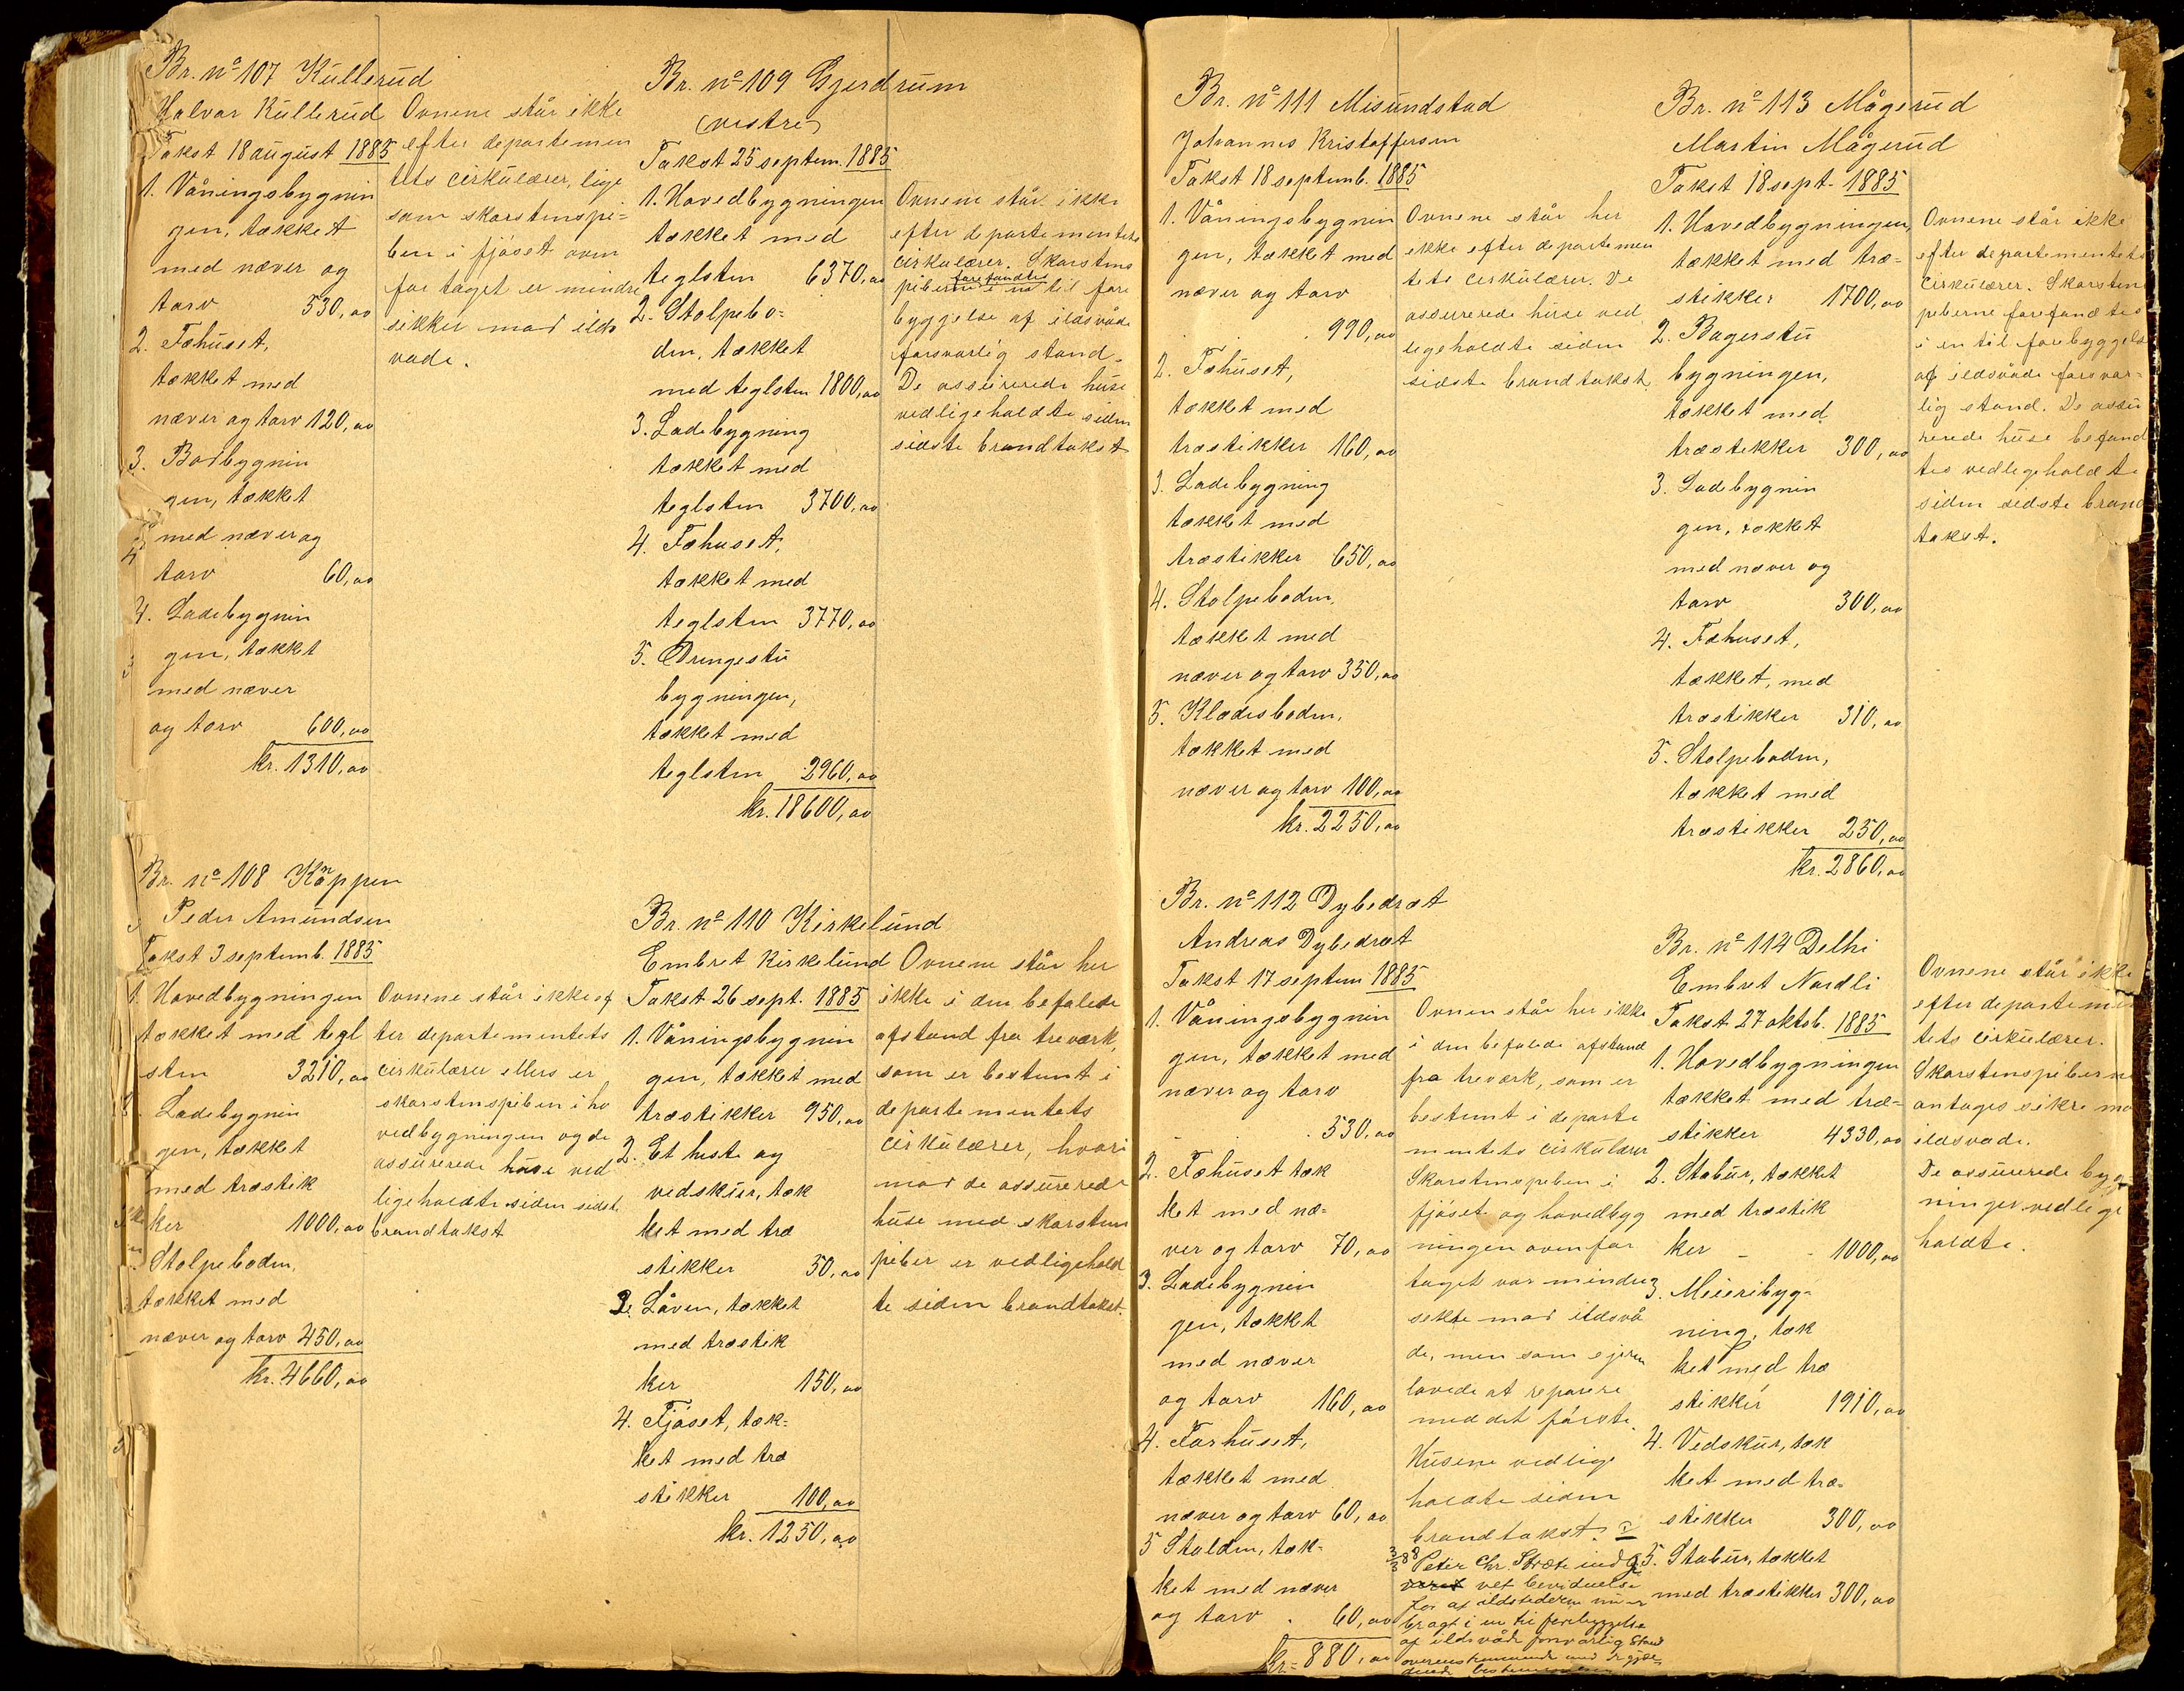 Br. nº 107 Kullerud
Halvor Kullerud
Takst 18 august 1885
1. Våningsbygnin
gen, tækket
med næver og
tarv 530,00
2. Fæhuset,
tækket med
næver og tarv 120,00
3. Bodbygnin
gen, tækket
med næver og
tarv 60,00
4. Ladebygnin
gen, tækket
med næver
og tarv 600,00
kr. 1310,00
Ovnene står ikke
efter departemen
tets cirkulærer, lige
som skorstenspi=
ben i fjøset oven
for taget er mindre
sikker mod ilds
vade.
Br. nº 108 Koppen
Peder Amundsen
Takst 3 septemb. 1885
1. Hovedbygningen
tækket med tegl
sten 3210,00
Ladebygnin
gen, tækket
med træstik
ker 1000,00
Stolpeboden,
tækket med
næver og tarv 450,00
kr. 4660,00
Ovnene står ikke ef
ter departementets
cirkulærer ellers er
skorstenspiben i ho
vedbygningen og de
assurerede huse ved
ligeholdte siden sidst
brandtakst
Br. nº 109 Gjerdrum
(vestre)
Takst 25 septem. 1885
1. Hovedbygningen
tækket med
teglsten 6370,00
2. Stolpebo=
den, tækket
med teglsten 1800,00
3. Ladebygning
tækket med
teglsten 3700,00
4. Fæhuset,
tækket med
teglsten 3770,00
5. Drengestu
bygningen,
tækket med
teglsten 2960,00
kr. 18600,00
Ovnene står ikke
efter departementets
cirkulærer. Skorstens
forefandtes
piberne i en til fore
byggelse af ildsvåde
forsvarlig stand.
De assurerede huse
vedligeholdte siden
sidste brandtakst
Br. nº 110 Kirkelund
Embret Kirkelund
Takst 26 sept. 1885
1. Våningsbygnin
gen, tækket med
træstikker 950,00
2. Et heste og
vedskur, tæk
ket med træ
stikker 50,00
3. Låven, tækket
med træstik
ker 150,00
4. Fjøset, tæk=
ket med træ
stikker 100,00
kr. 1250,00
Ovnene står her
ikke i den befalede
afstand fra treværk,
som er bestemt i
departementets
cirkulærer, hvori
mod de assurerede
huse med skorstens
piber er vedligehold
te siden brandtakst.
Br. nº 111 Misundstad
Johannes Kristoffersen
Takst 18 septemb. 1885
1. Våningsbygnin
gen, tækket med
næver og tarv
. . 990,00
2. Fæhuset,
tækket med
træstikker 160,00
3. Ladebygning
tækket med
træstikker 650,00
4. Stolpeboden,
tækket med
næver og tarv 350,00
5. Klædesboden,
tækket med
næver og tarv 100,00
kr. 2250,00
Ovnene står her
ikke efter departemen
tets cirkulærer. De
assurerede huse ved
ligeholdte siden
sidste brandtakst.
Br. nº 112 Dybedræt
Andreas Dybedræt
Takst 17 septem 1885
1. Våningsbygnin
gen, tækket med
næver og tarv
- . . 530,00
2. Fæhuset tæk
ket med næ=
ver og tarv 70,00
3. Ladebygnin
gen, tækket
med næver
og tarv 160,00
4. Forhuset,
tækket med
næver og tarv 60,00
5 Stalden, tæk=
ket med næver
og tarv . 60,00
kr. 880,00
Ovnen står her ikke
i den befalede afstand
fra treværk, som er
bestemt i departe
mentets cirkulærer
Skorstenspiben i
fjøset og hovedbyg
ningen ovenfor
taget var mindre
sikke mod ildsvå
de, men som ejeren
lovede at reparere
med det første.
Husene vedlige
holdte siden
brandtakst.
3/3 88 Peter Chr. Stræte indgi
veret vet bevidnelse
for at ildstederne nu er
bragt i en til forebyggelse
af ildsvåde forsvarlig Stand
overensstemmende med de gjæl-
dende bestemmelser
Br. nº 113 Mågerud
Martin Mågerud
Takst 18 sept. 1885
1. Hovedbygningen,
tækket med træ=
stikker 1700,00
2. Bagerstu
bygningen,
tækket med
træstikker 300,00
3. Ladebygnin
gen, tækket
med næver og
tarv 300,00
4. Fæhuset,
tækket, med
træstikker 310,00
5. Stolpeboden,
tækket med
træstikker 250,00
kr. 2860,00
Ovnene står ikke
efter departementets
cirkulærer. Skorstens
piberne forefandtes
i en til forebyggelse
af ildsvåde forsvar=
lig stand. De assu
rerede huse befand
tes vedligeholdte
siden sidste brand
takst.
Br. nº 114 Delhi
Embret Nordli
Takst 27 oktob. 1885
1. Hovedbygningen
tækket med træ=
stikker 4330,00
2. Stabur, tækket
med træstik
ker - - 1000,00
3. Meieribyg=
ning, tæk
ket med træ
stikker 1910,00
4. Vedskur, tæk
ket med træ=
stikker 300,00
5. Stabur, tækket
med træstikker 300,00
Ovnene står ikke
efter departemen
tets cirkulærer.
Skorstenspiberne
antages sikre mo
ildsvade.
De assurerede byg
ninger vedlige
holdte.